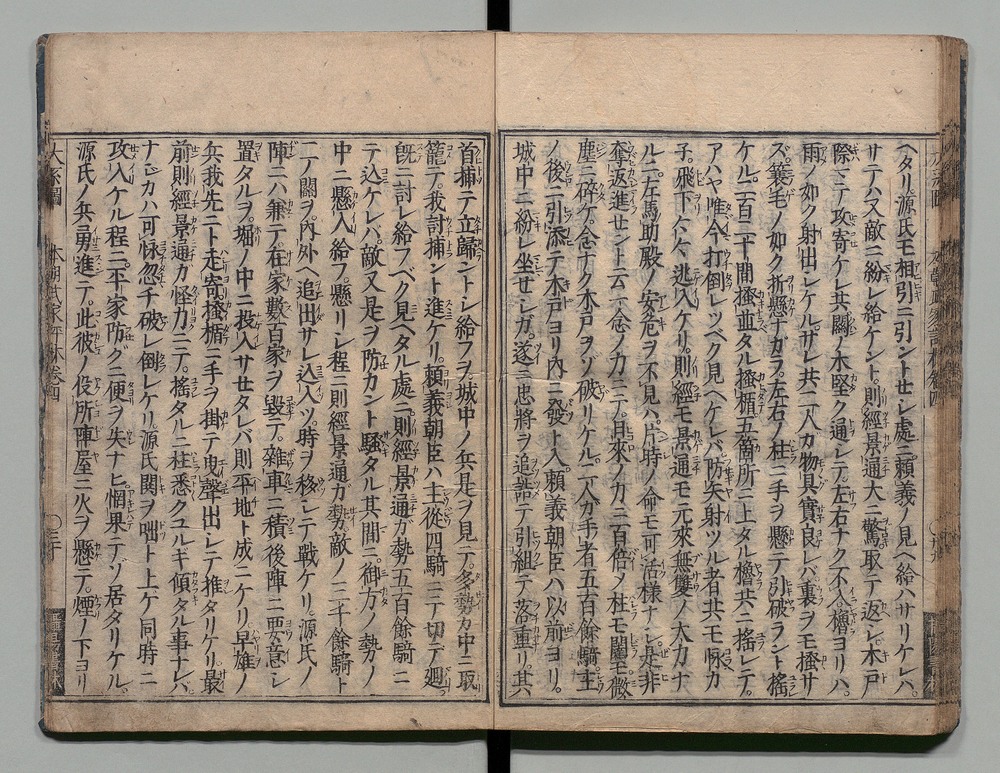 ヘタリ源氏モ相引ニ引ントせシ處ニ頼義ノ見ヘ給ハサリケレハ。
サテハ又敵ニ紛レ給ケント。則經景通大ニ驚取テ返シ木戸
際ニテ攻寄ケレ共關ノ木堅ク通シテ。左右ナク不入。櫓ヨリハ。
雨ノ如ク射出シケル。サレ共二人カ物具實良レバ。裏ヲモ掻サ
ズ。簑毛ノ如ク折懸ナガラ。左右ノ柱ニ手ヲ懸テ。引破ラント搖
ケルニ。二百三十間掻並タル掻楯五箇所ニ上タル櫓共ニ搖レテ。
アハヤ唯今打倒レツベク見ヘケレバ。防矢射ツル者共モ怺カ
子。飛下〳〵逃入ケリ。則經モ景通モ元來無雙ノ大力ナ
ルニ。左馬助殿ノ安危ヲ不見ハ。片時ノ命モ可活様ナシ。是非
奪返進せント云一念ノ力ニテ。日來ノ力ニ百倍ノ柱モ關モ微
塵ニ碎ケ。念ナク木戸ヲゾ破リケル。二人カ手ノ者五百餘騎。主
ノ後ニ引添テ。木戸ヨリ内ニ發ト入。頼義朝臣ハ以前ヨリ。
城中ニ紛レ坐せシガ。遂ニ忠將ヲ追詰テ引組テ落重リ。其
首捕テ立歸ントシ給フヲ。城中ノ兵是ヲ見テ。多勢カ中ニ取
籠テ。我討捕ント進ケリ。頼義朝臣ハ主從四騎ニテ切テ廻。
既ニ討レ給フベク見ヘタル處ニ。則經景通ガ勢五百餘騎ニ
テ込ケレバ。敵又是ヲ防カント騒タル其間ニ。御方ノ勢ノ
中ニ懸入給フ。懸リシ程ニ則經景通カ勢。敵ノ二千餘騎ト
一ニテノ關ヲ。内外ヘ追出サレ込入ツ。時ヲ移シテ戰ケリ。源氏ノ
陣ニハ兼テ。在家數百家ヲ毀テ。雜車ニ積。後陣ニ要意シ
置タルヲ。堀ノ中ニ投入サせタレバ。則平地ト成ニケリ。早雄ノ
兵我先ニト走寄。掻楯ニ手ヲ掛テ。曳聲出シテ推タリケリ。最
前則經景通カ怪力ニテ。搖タルニ柱悉クユルギ傾タル事ナレバ。
ナシカハ可怺。忽チ破レ倒レケリ。源氏鬨ヲ咄ト上ケ同時ニ
攻入ケル程ニ。平家防クニ便ヲ失ナヒ。惘果テソ居タリケル。
源氏ノ兵勇進テ。此彼ノ役所陣屋ニ火ヲ懸テ。煙ノ下ヨリ
大系圖　本朝武家評林卷四　〇三十